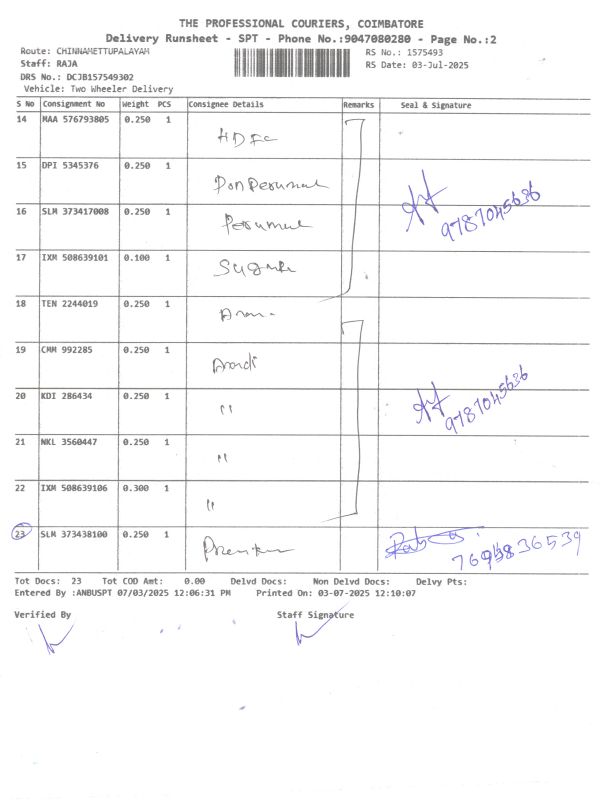 THE PROFESSIONAL COURIERS, COIMBATORE
Delivery Runsheet - SPT - Phone No.:9047080280 - Page No.:2
Route: CHINNAMETTUPALAYAM RS No.: 1575493
Staff: RAJA RS Date: 03-Jul-2025
DRS No.: DCJB157549302
Vehicle: Two Wheeler Delivery
S No Consignment No Weight PCS Consignee Details Remarks Seal & Signature
14 MAA 576793805 0.250 1 HDFC
15 DPI 5345376 0.250 1 Ponperumal
16 SLM 373417008 0.250 1 Perumal 9787045636
17 IXM 508639101 0.100 1
18 TEN 2244019 0.250 1
19 CMM 992285 0.250 1
20 KDI 286434 0.250 1 " 9787045636
21 NKL 3560447 0.250 1 "
22 IXM 508639106 0.300 1 "
23 SLM 373438100 0.250 1
Tot Docs: 23 Tot COD Amt: 0.00 Delvd Docs: Non Delvd Docs: Delvy Pts:
Entered By :ANBUSPT 07/03/2025 12:06:31 PM Printed On: 03-07-2025 12:10:07
Verified By Staff Signature